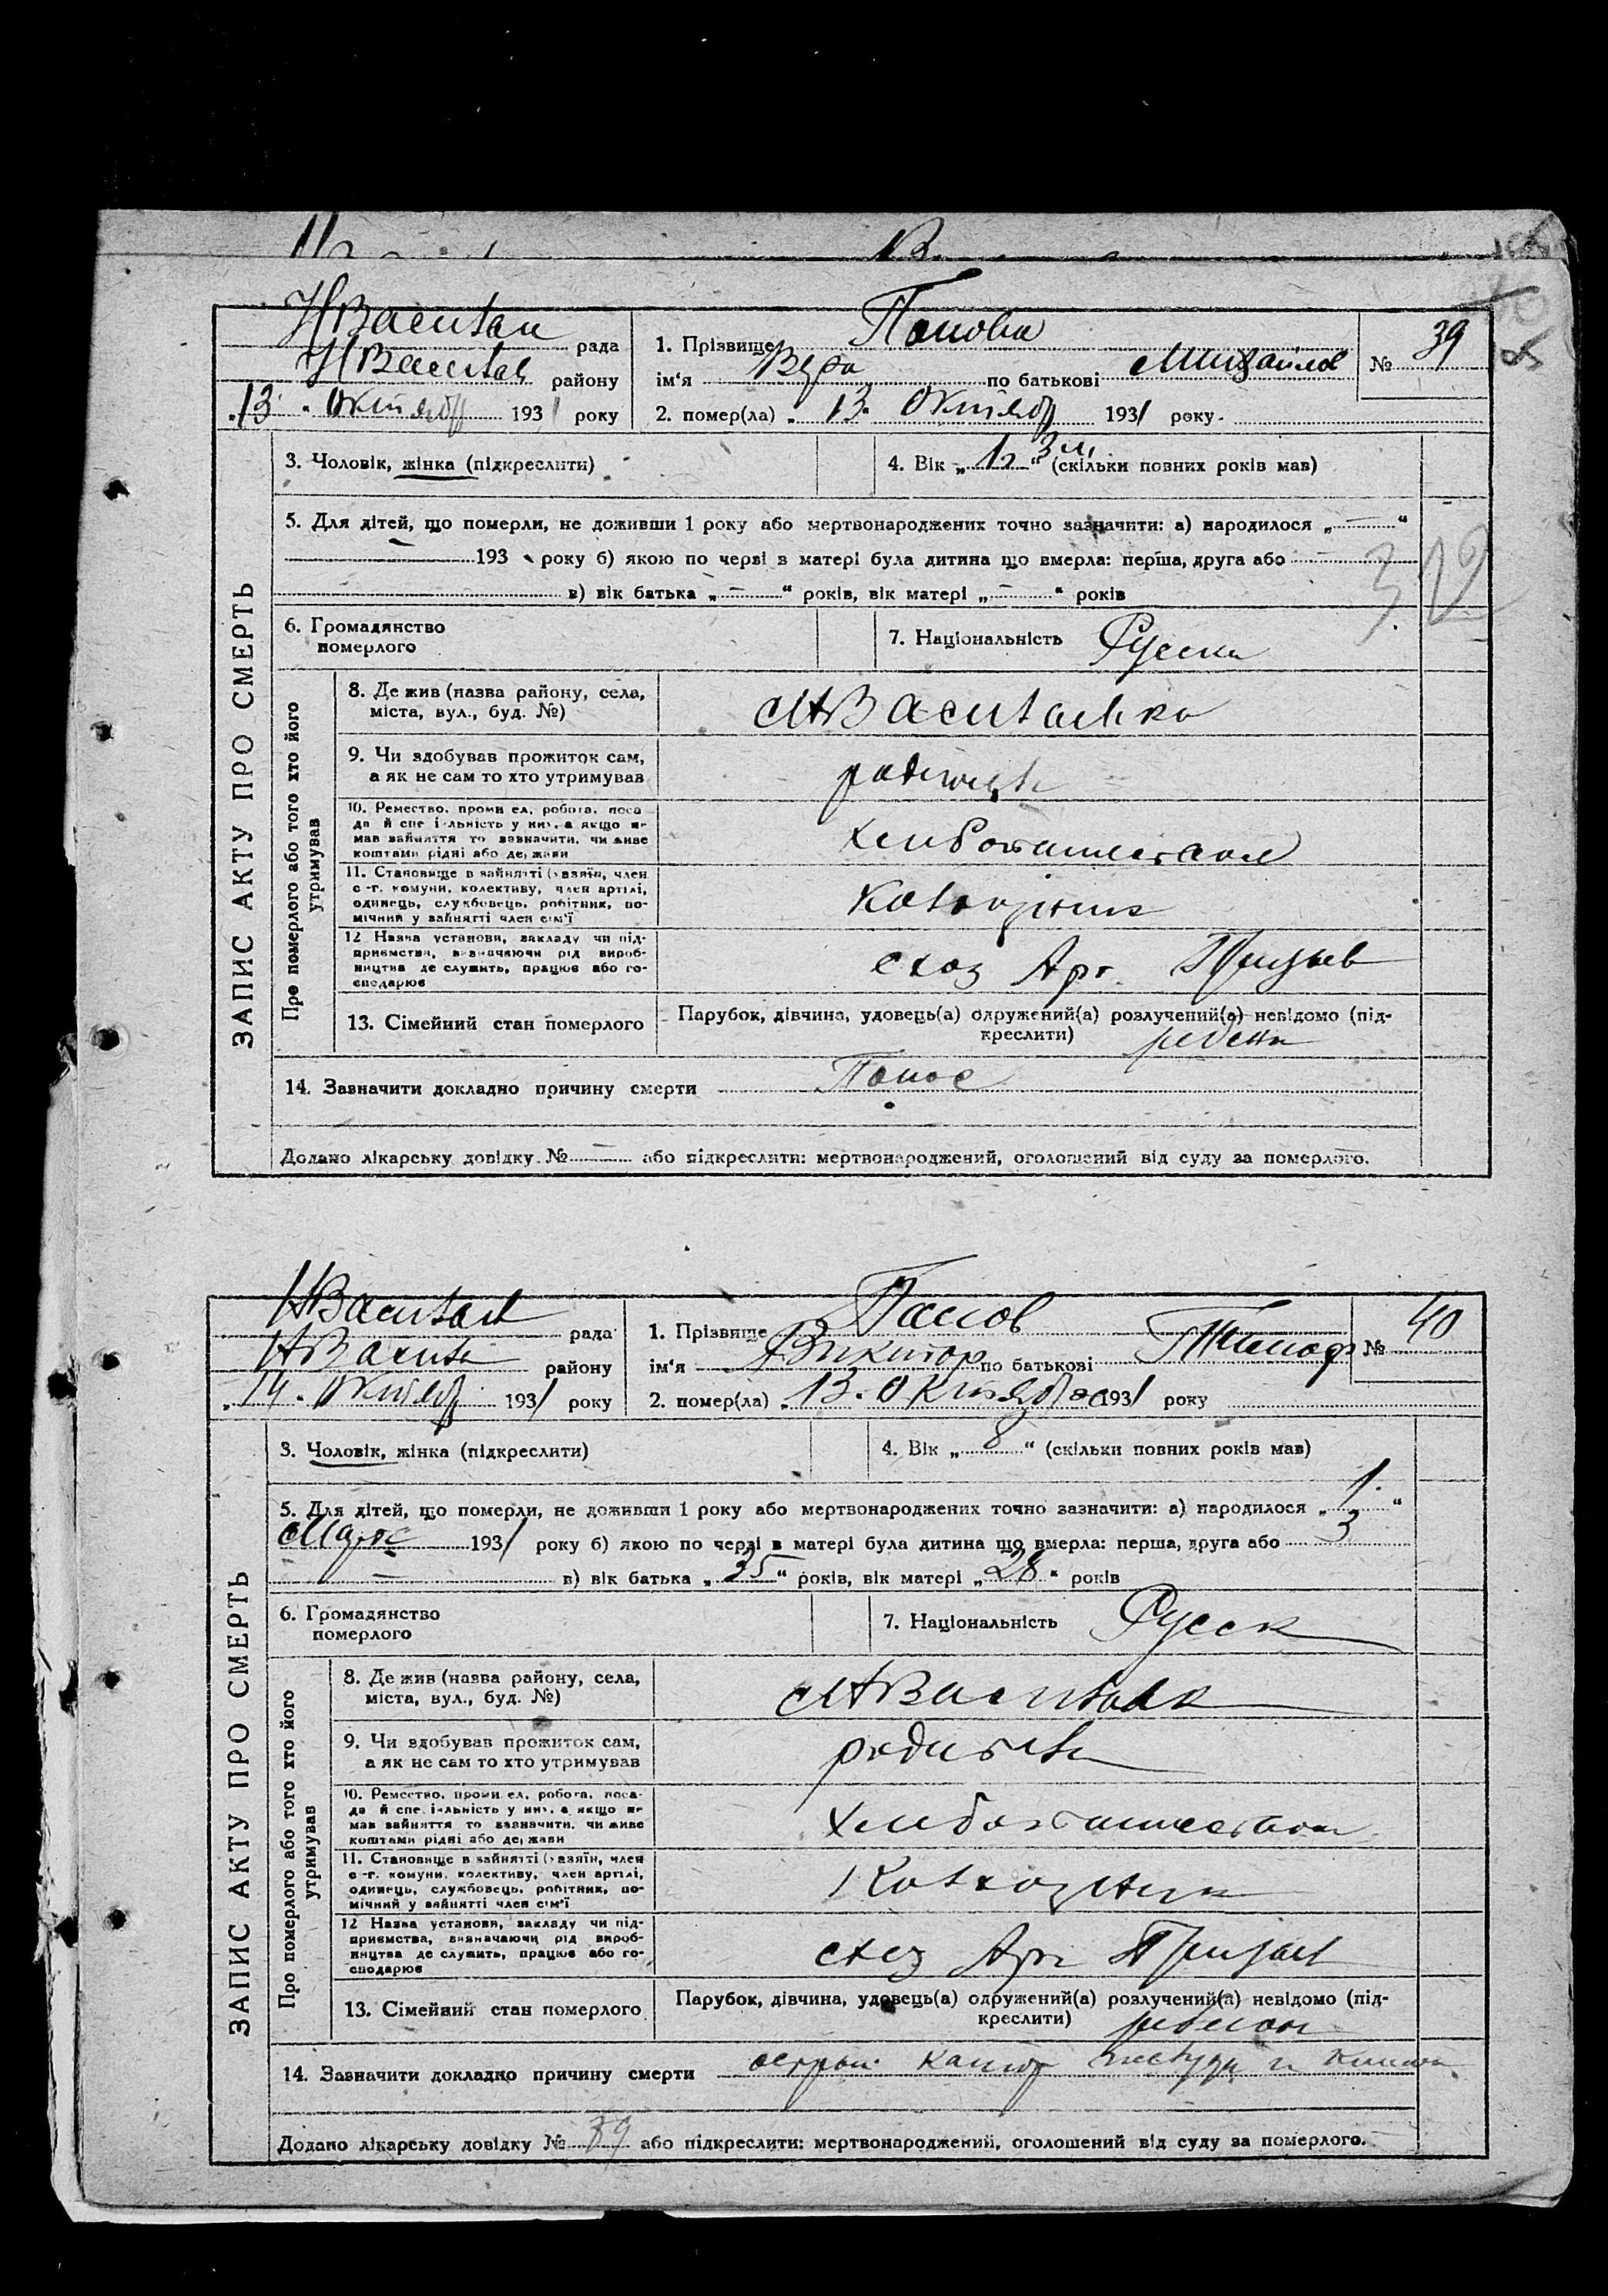 НВасильев
рада
НВасильев
району
13 " Октябр 1931 року
1. Прізвище Попова
ім'я Вера по батькові Михайлов
№ 39
2. помер(ла) „ 13 " Октябр 1931 року
3. Чоловік, жінка (підкреслити)
4. Вік „ 1 г 3 м. " (скільки повних років мав)
5. Для дітей, що померли, не доживши 1 року або мертвонароджених точно зазначити: а) народилося „ — "
193 року б) якою по черві в матері була дитина що вмерла: перша, друга або
в) вік батька „ — " років, вік матері „ — " років
6. Громадянство
померлого
7. Національність Русска
ЗАПИС АКТУ ПРО СМЕРТЬ
Про померлого або того хто його
утримував
8. Де жив (назва району, села,
міста, вул., буд. №)
НВасильевка
9. Чи здобував прожиток сам,
а як не сам то хто утримував
родитель
10. Ремество, промисел, робота, поса-
да й спеціяльність у них, а якщо не
мав зайняття то зазначити, чи живе
коштами рідні або держави
хлебопашеством
11. Становище в зайнятті (хазяїн, член
с.-г. комуни, колективу, член артілі,
одинець, службовець, робітник, по-
мічний у зайнятті член сім'ї
Колхозник
12 Назва установи, закладу чи під-
приємства, визначаючи рід вироб-
ництва де служить, працює або го-
сподарює
схоз Арт. Призыв
13. Сімейний стан померлого
Парубок, дівчина, удовець(а) одружений(а) розлучений(а) невідомо (під-
креслити)
ребенк
14. Зазначити докладно причину смерти Понос
Додано лікарську довідку № — або підкреслити: мертвонароджений, оголошений від суду за померлого.
НВасильев
рада
НВасиль
району
14 " Октябр 1931 року
1. Прізвище Попов
ім'я Виктор по батькові Тимоф
№ 40
2. помер(ла) „ 13 " Октября 1931 року
3. Чоловік, жінка (підкреслити)
4. Вік „ 8 " (скільки повних років мав)
5. Для дітей, що померли, не доживши 1 року або мертвонароджених точно зазначити: а) народилося „ 1 "
Марта 1931 року б) якою по черзі в матері була дитина що вмерла: перша, друга або 3
— в) вік батька „ 35 " років, вік матері „ 28 " років
6. Громадянство
померлого
7. Національність Русск
ЗАПИС АКТУ ПРО СМЕРТЬ
Про померлого або того хто його
утримував
8. Де жив (назва району, села,
міста, вул., буд. №)
НВасильевк
9. Чи здобував прожиток сам,
а як не сам то хто утримував
родитель
10. Ремество, промисел, робота, поса-
да й спеціяльність у них, а якщо не
мав зайняття то зазначити, чи живе
коштами рідні або держави
хлебопашеством
11. Становище в зайнятті (хазяїн, член
с.-г. комуни, колективу, член артілі,
одинець, службовець, робітник, по-
мічний у зайнятті член сім'ї
Колхозник
12 Назва установи, закладу чи під-
приємства, визначаючи рід вироб-
ництва де служить, працює або го-
сподарює
схоз Арт Призыв
13. Сімейний стан померлого
Парубок, дівчина, удовець(а) одружений(а) розлучений(а) невідомо (під-
креслити)
ребенок
14. Зазначити докладно причину смерти острый катар желудк и кишек
Додано лікарську довідку № 39 або підкреслити: мертвонароджений, оголошений від суду за померлого.